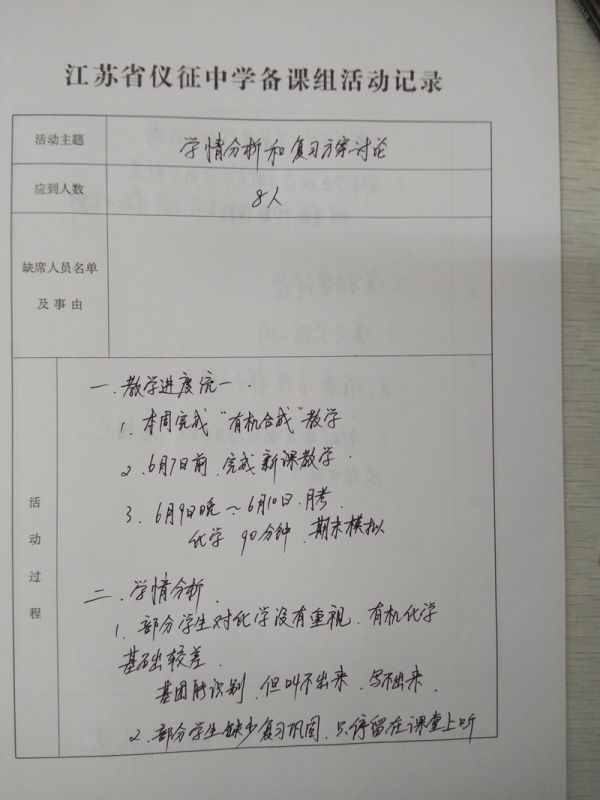 江苏省仪征中学备课组活动记录
活动主题
学情分析和复习方案讨论
应到人数
8人
缺席人员名单
及事由
活动过程
一.教学进度统一.
1. 本周完成"有机合成"教学
2. 6月7日前.完成新课教学.
3. 6月9日晚~6月10日.月考
化学 90分钟.期末模拟
二.学情分析.
1. 部分学生对化学没有重视.有机化学
基础较差.
基团能识别.但叫不出来.写不出来.
2. 部分学生缺少复习巩固.只停留在课堂上听